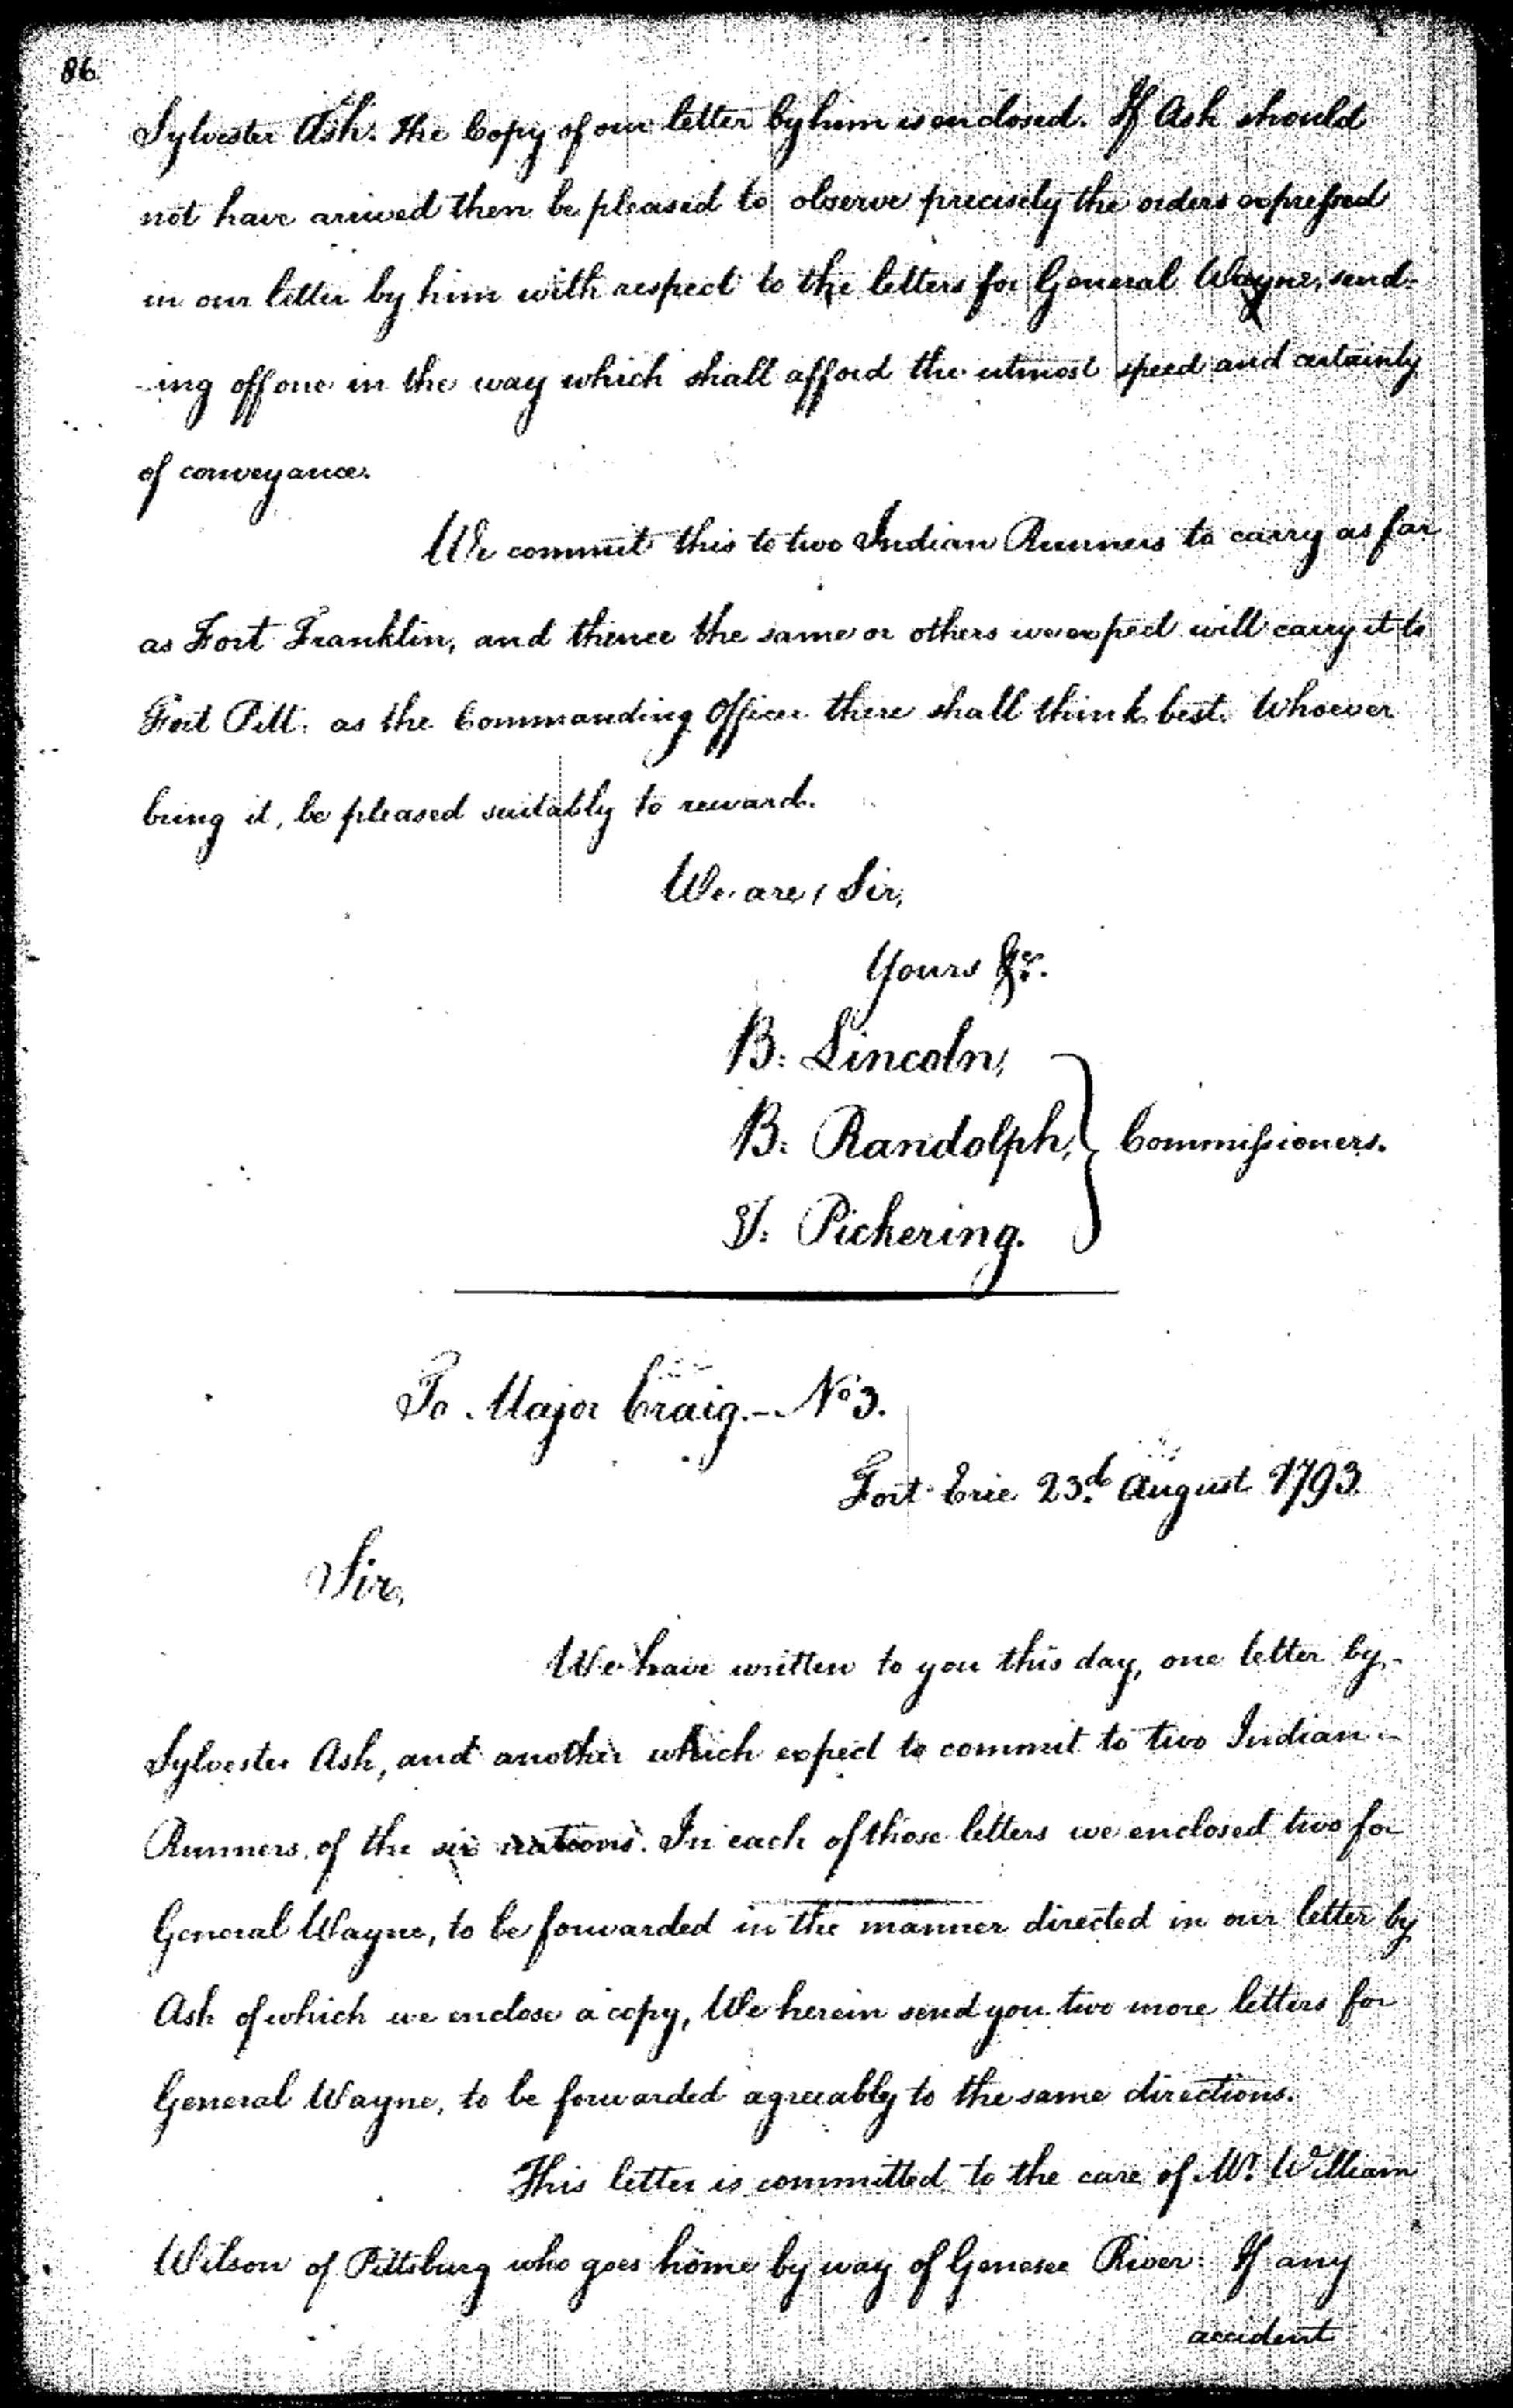 86.
Sylvester Ash. The Copy of our letter by him is enclosed. If Ash should
not have arrived then be pleased to observe precisely the orders expressed
in our letter by him with respect to the letters for General Wayne, send-
-ing off one in the way which shall afford the utmost speed and certainty
of conveyance.
We commit this to two Indian Runners to carry as far
as Fort Franklin, and thence the same or others we expect will carry it to
Fort Pitt. as the Commanding Officer there shall think best. Whoever
bring it, be pleased suitably to reward.
We are, Sir,
Yours &c.
B: Lincoln,
B: Randolph, } Commissioners.
T: Pickering.
To Major Craig. - No 3.
Fort Erie 23d. August 1793.
Sir,
We have written to you this day, one letter by
Sylvester Ash, and another which expect to commit to two Indian
Runners, of the six nations. In each of those letters we enclosed two for
General Wayne, to be forwarded in the manner directed in our letter by
Ash of which we enclose a copy, We herein send you two more letters for
General Wayne, to be forwarded agreeably to the same directions.
This letter is committed to the care of Mr. William
Wilson of Pittsburg who goes home by way of Genesee River. If any
accident